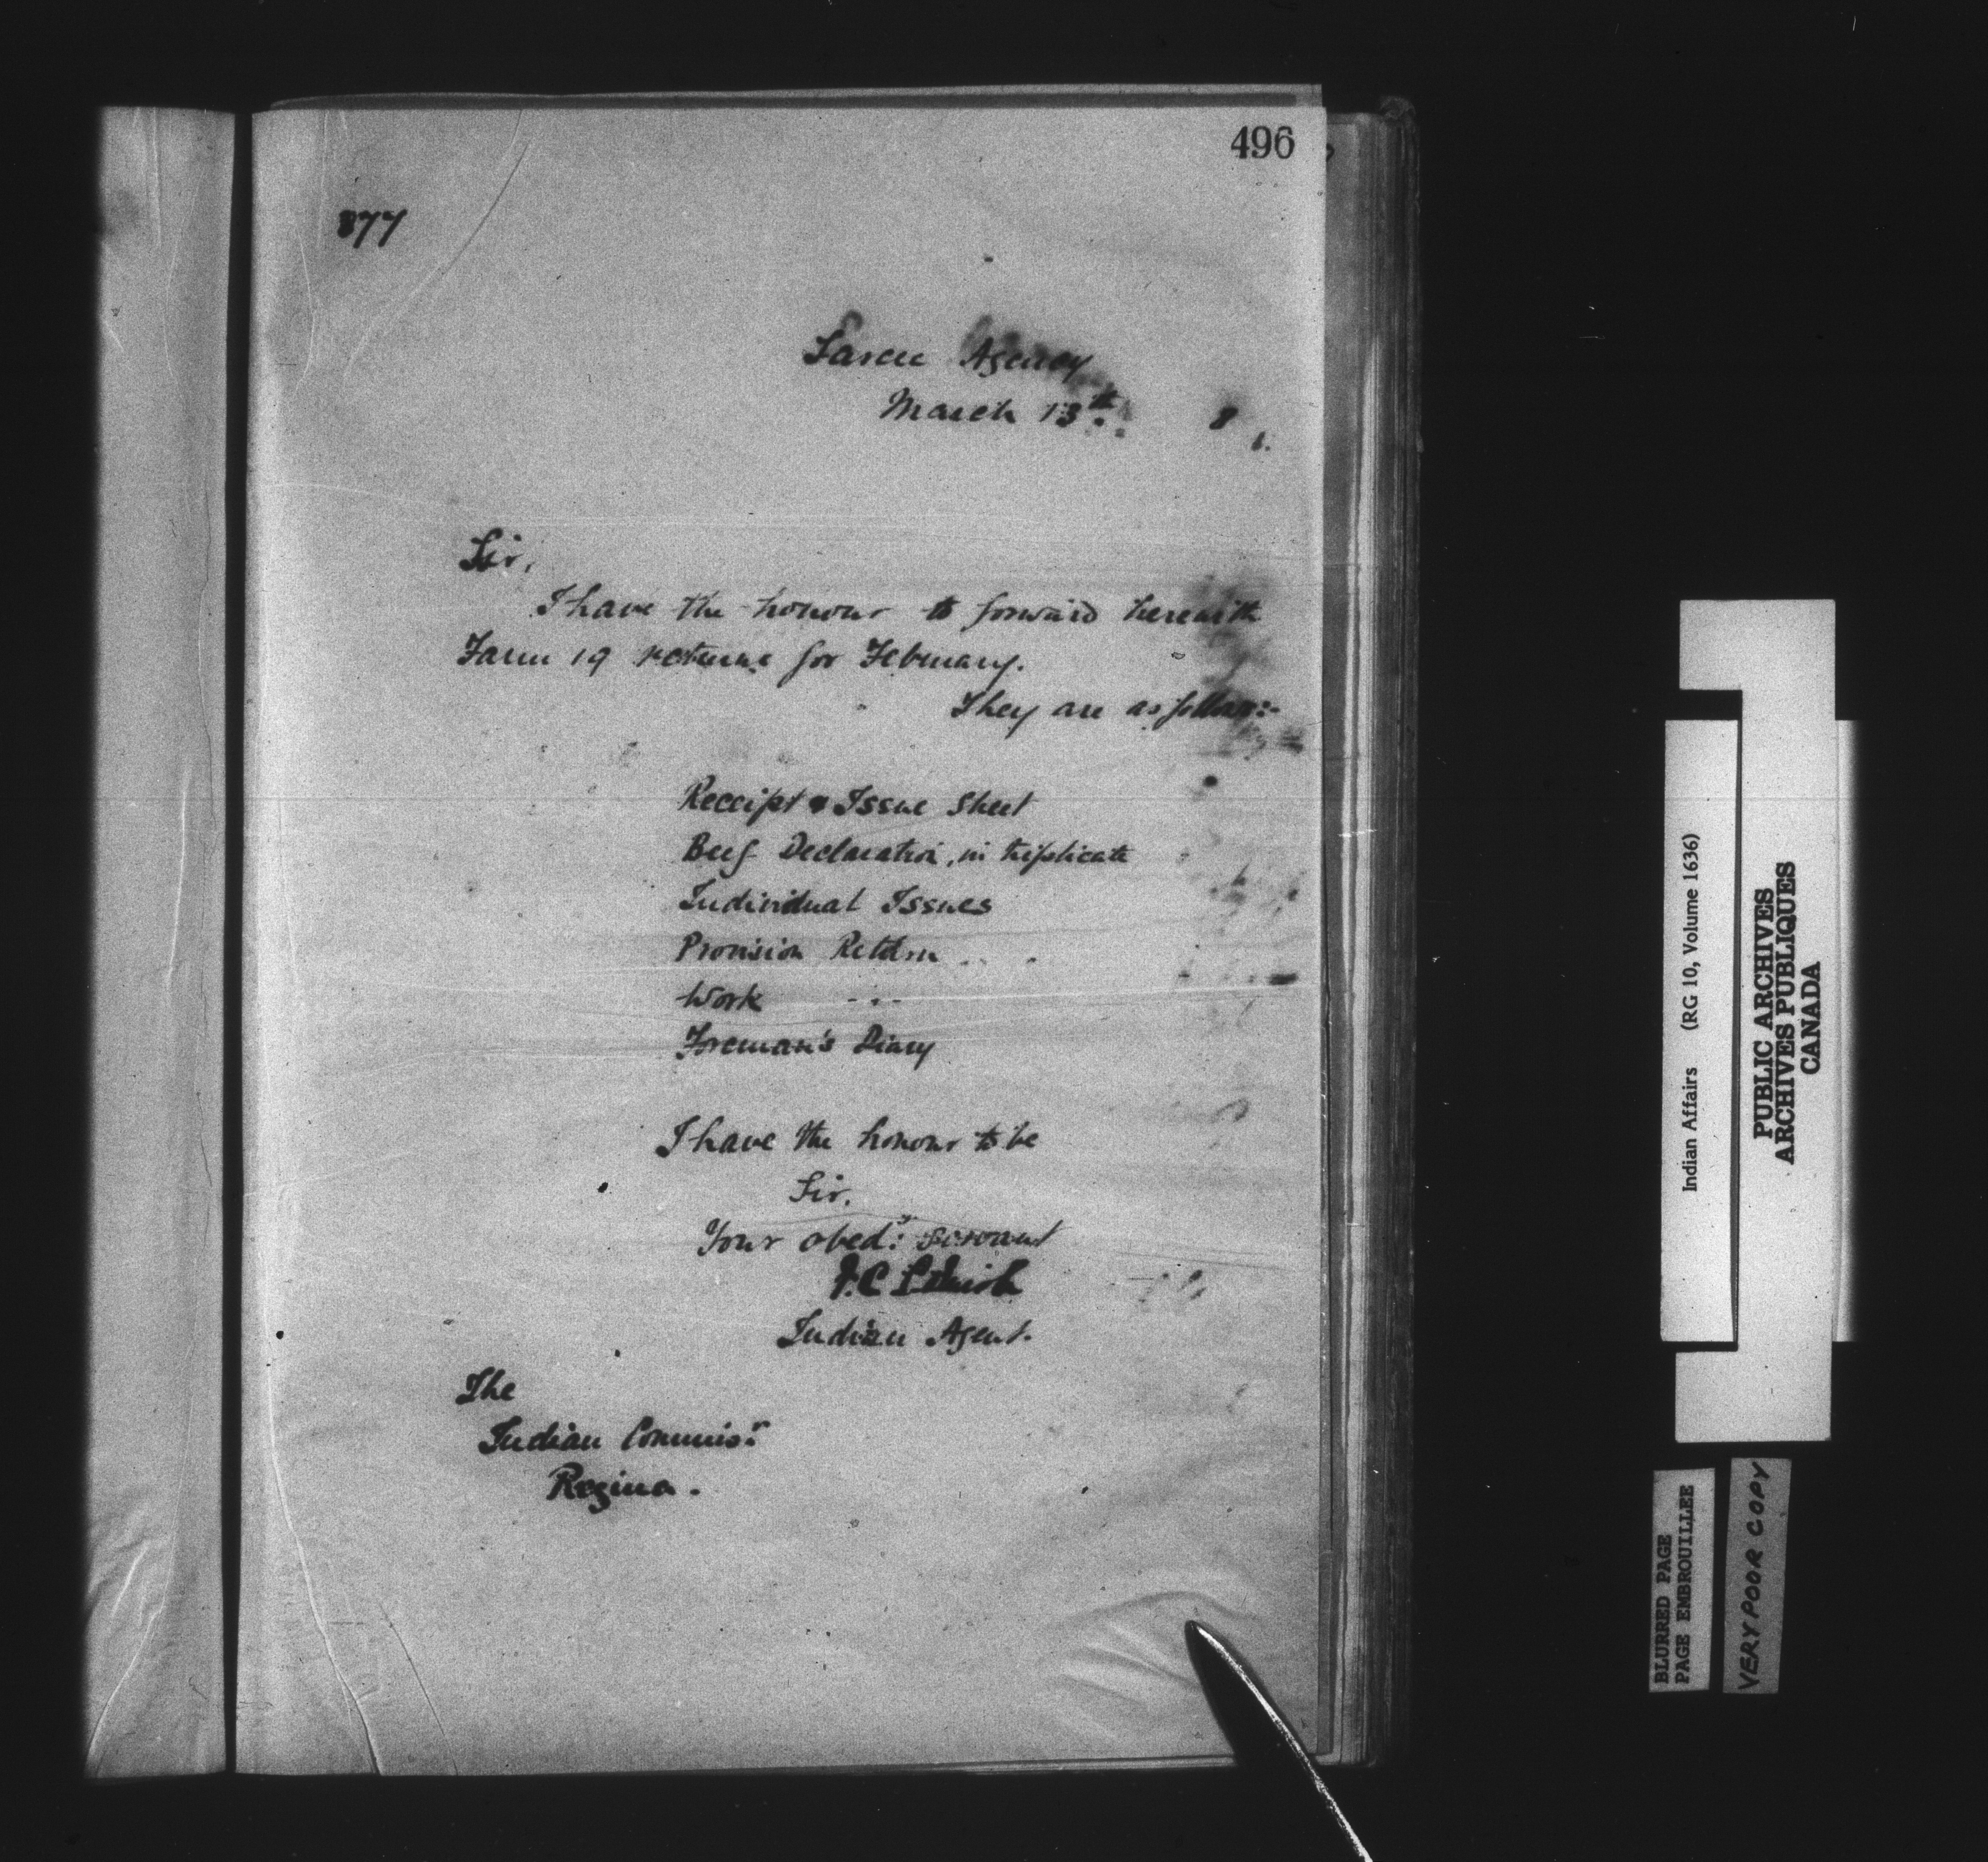 496
877
Sarcee Agency
March 13th. 8
Sir,
I have the honour to forward herewith
Farm 19 returns for February.
They are as follow:-
Receipt & Issue Sheet
Beef Declaration, in triplicate
Individual Issues
Provision Return
Work " " "
Foreman's Diary
I have the honour to be
Sir.
Your obedt servant
Indian Agent.
The
Indian Commisr
Regina.
Indian Affairs (RG 10, Volume 1636)
PUBLIC ARCHIVES
ARCHIVES PUBLIQUES
CANADA
BLURRED PAGE
PAGE EMBROUILLEE
VERY POOR COPY